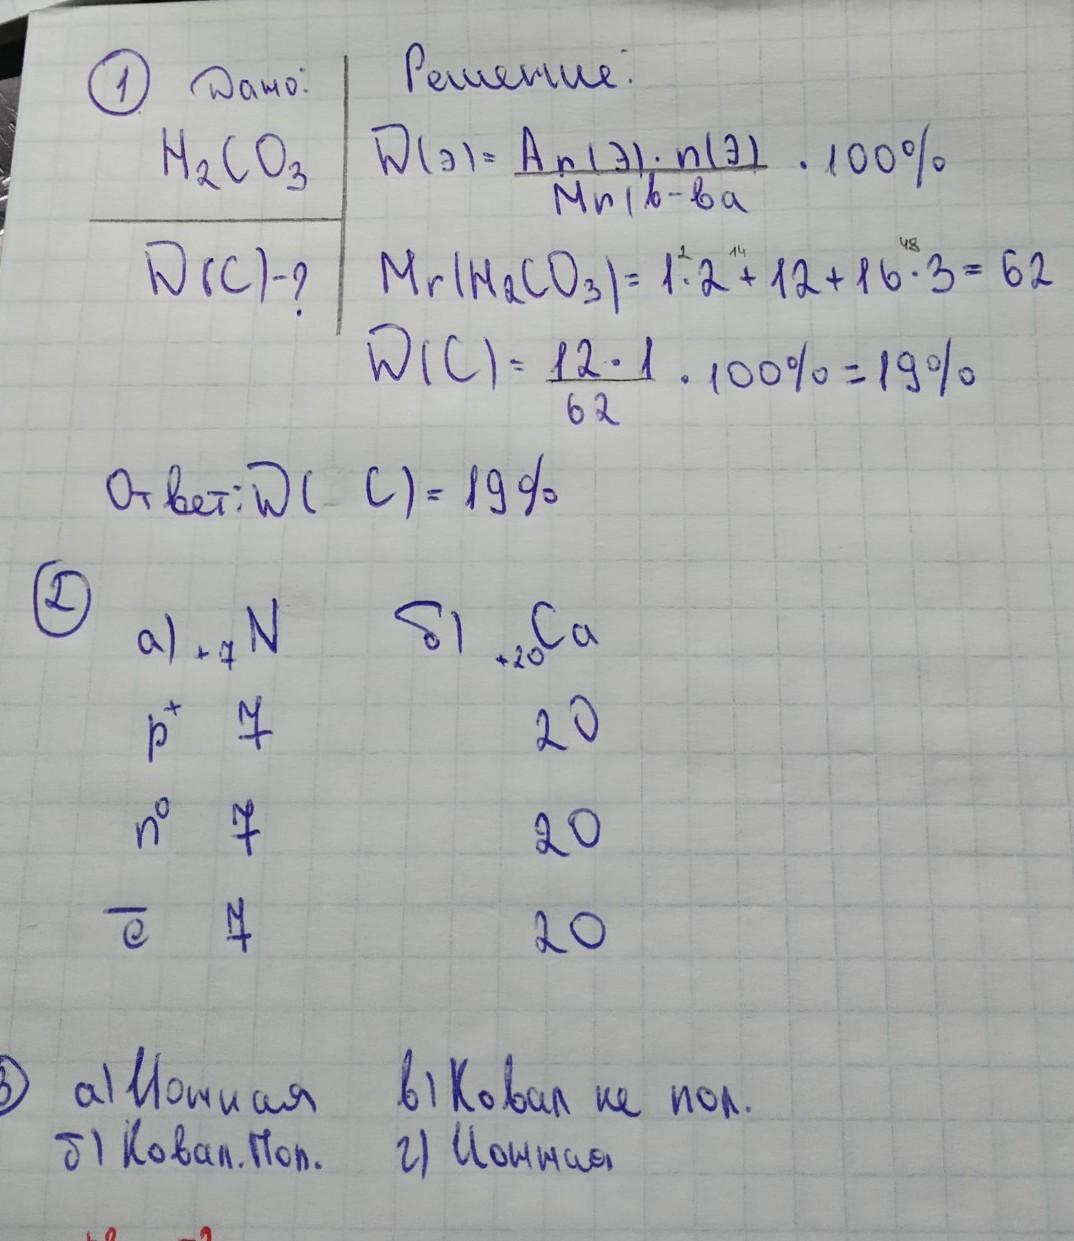 ① Дано: Решение:
H₂CO₃ W(э)= Ar(э)·n(э) / Mr(в-ва · 100%
W(C)-? Mr(H₂CO₃)= 1·2 + 12 + 16·3 = 62
2 14 48
W(C)= 12·1 / 62 · 100% = 19%
Ответ: W( C)= 19%
②
а) +7N б) +20Ca
p⁺ 7 20
n⁰ 7 20
e̅ 7 20
3) а) Ионная в) Ковал не пол.
б) Ковал. Пол. г) Ионная